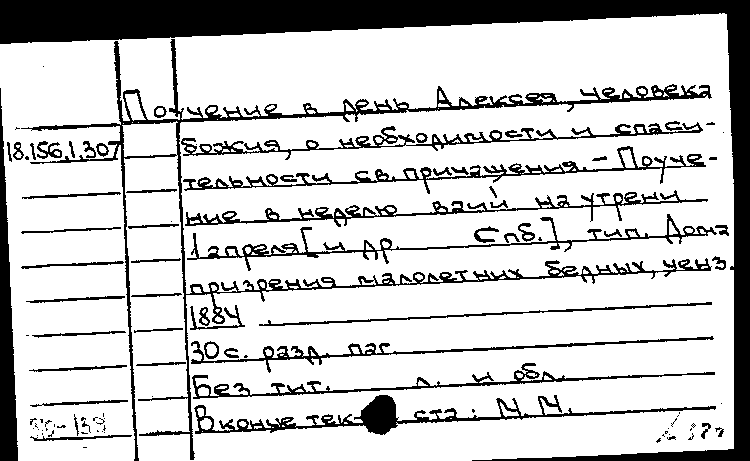 Поучение в день Алексея, человека
18.156.1.307
божия, о необходимости и спаси-
тельности св. причащения. - Поуче-
ние в неделю ваий на утрени
1 апреля [и др. Спб.], тип. Дома
призрения малолетних бедных, ценз.
1884.
30 с. разд. паг.
Без тит. л. и обл.
В конце тек-ста: М. М.